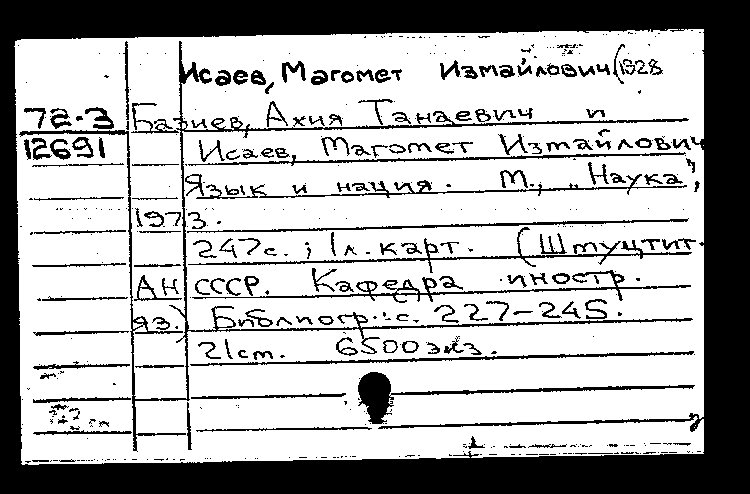 Исаев, Магомет Измайлович (1928
72-3 Базиев, Ахия Танаевич и
12691 Исаев, Магомет Измайлович
Язык и нация. М., „Наука",
1973.
247с.; 1л. карт. (Штуцтит.
АН СССР. Кафедра иностр.
яз.) Библиогр.: с. 227-245.
21см. 6500экз.